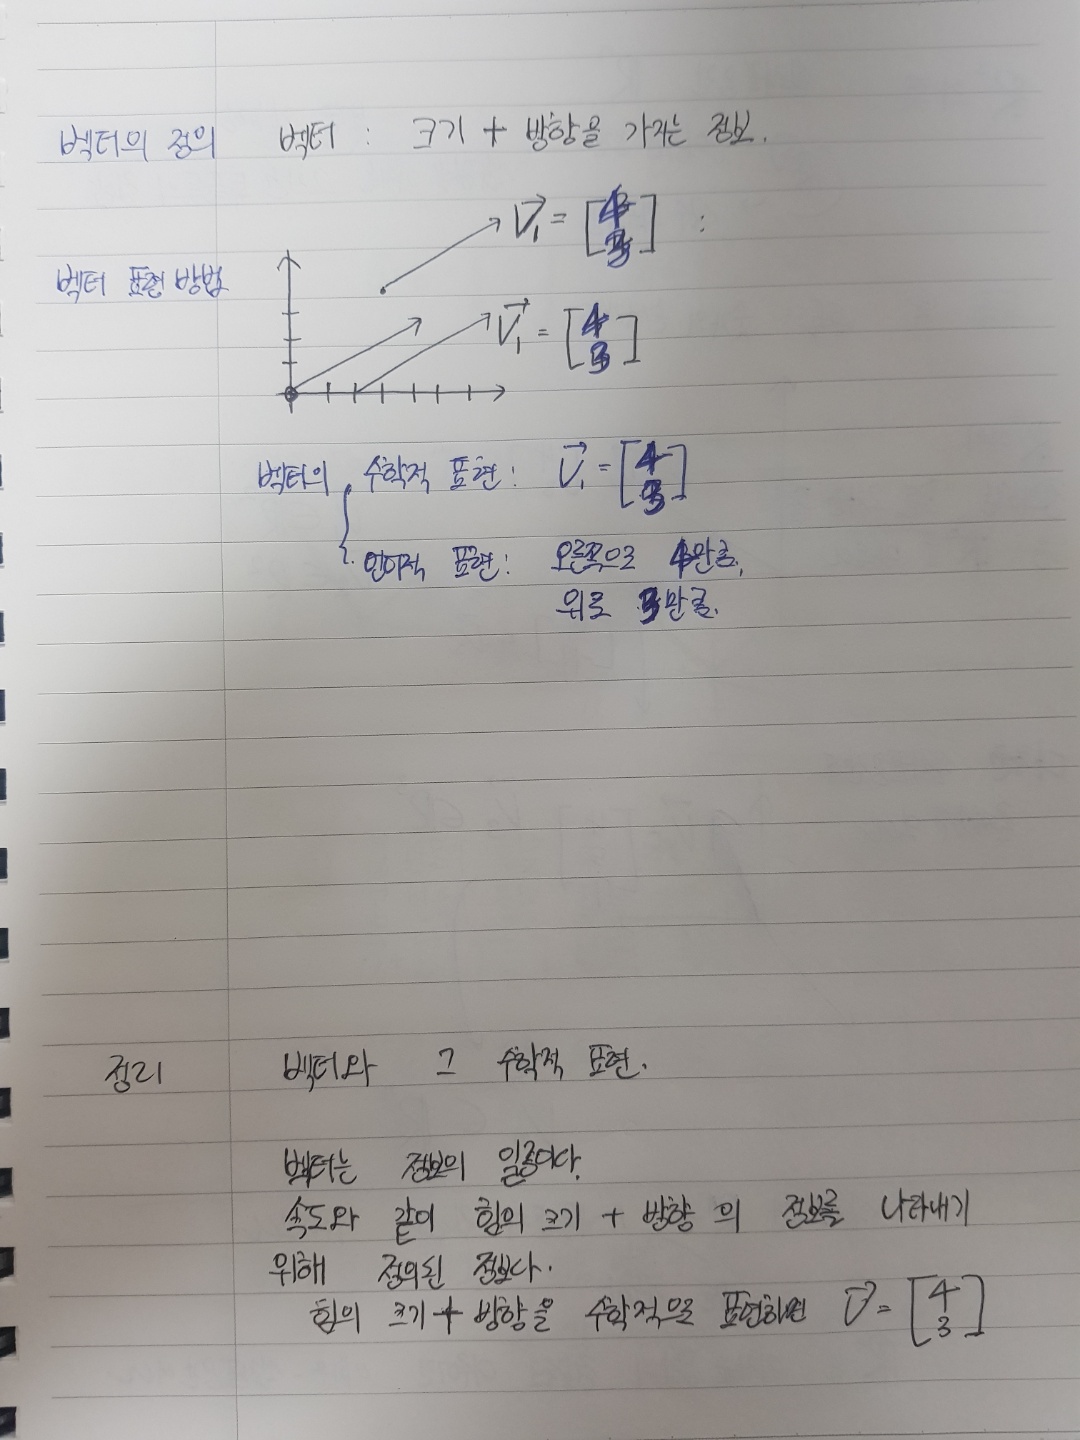 벡터의 정의 벡터 : 크기 + 방향을 가지는 정보.
V₁ = [4 3] :
벡터 표현 방법
V₁ = [4 3]
벡터의 수학적 표현 : V₁ = [4 3]
언어적 표현 : 오른쪽으로 4만큼,
위로 3만큼.
정리 벡터와 그 수학적 표현.
벡터는 정보의 일종이다.
속도와 같이 힘의 크기 + 방향 의 정보를 나타내기
위해 정의된 정보다.
힘의 크기 + 방향을 수학적으로 표현하면 V = [4 3]